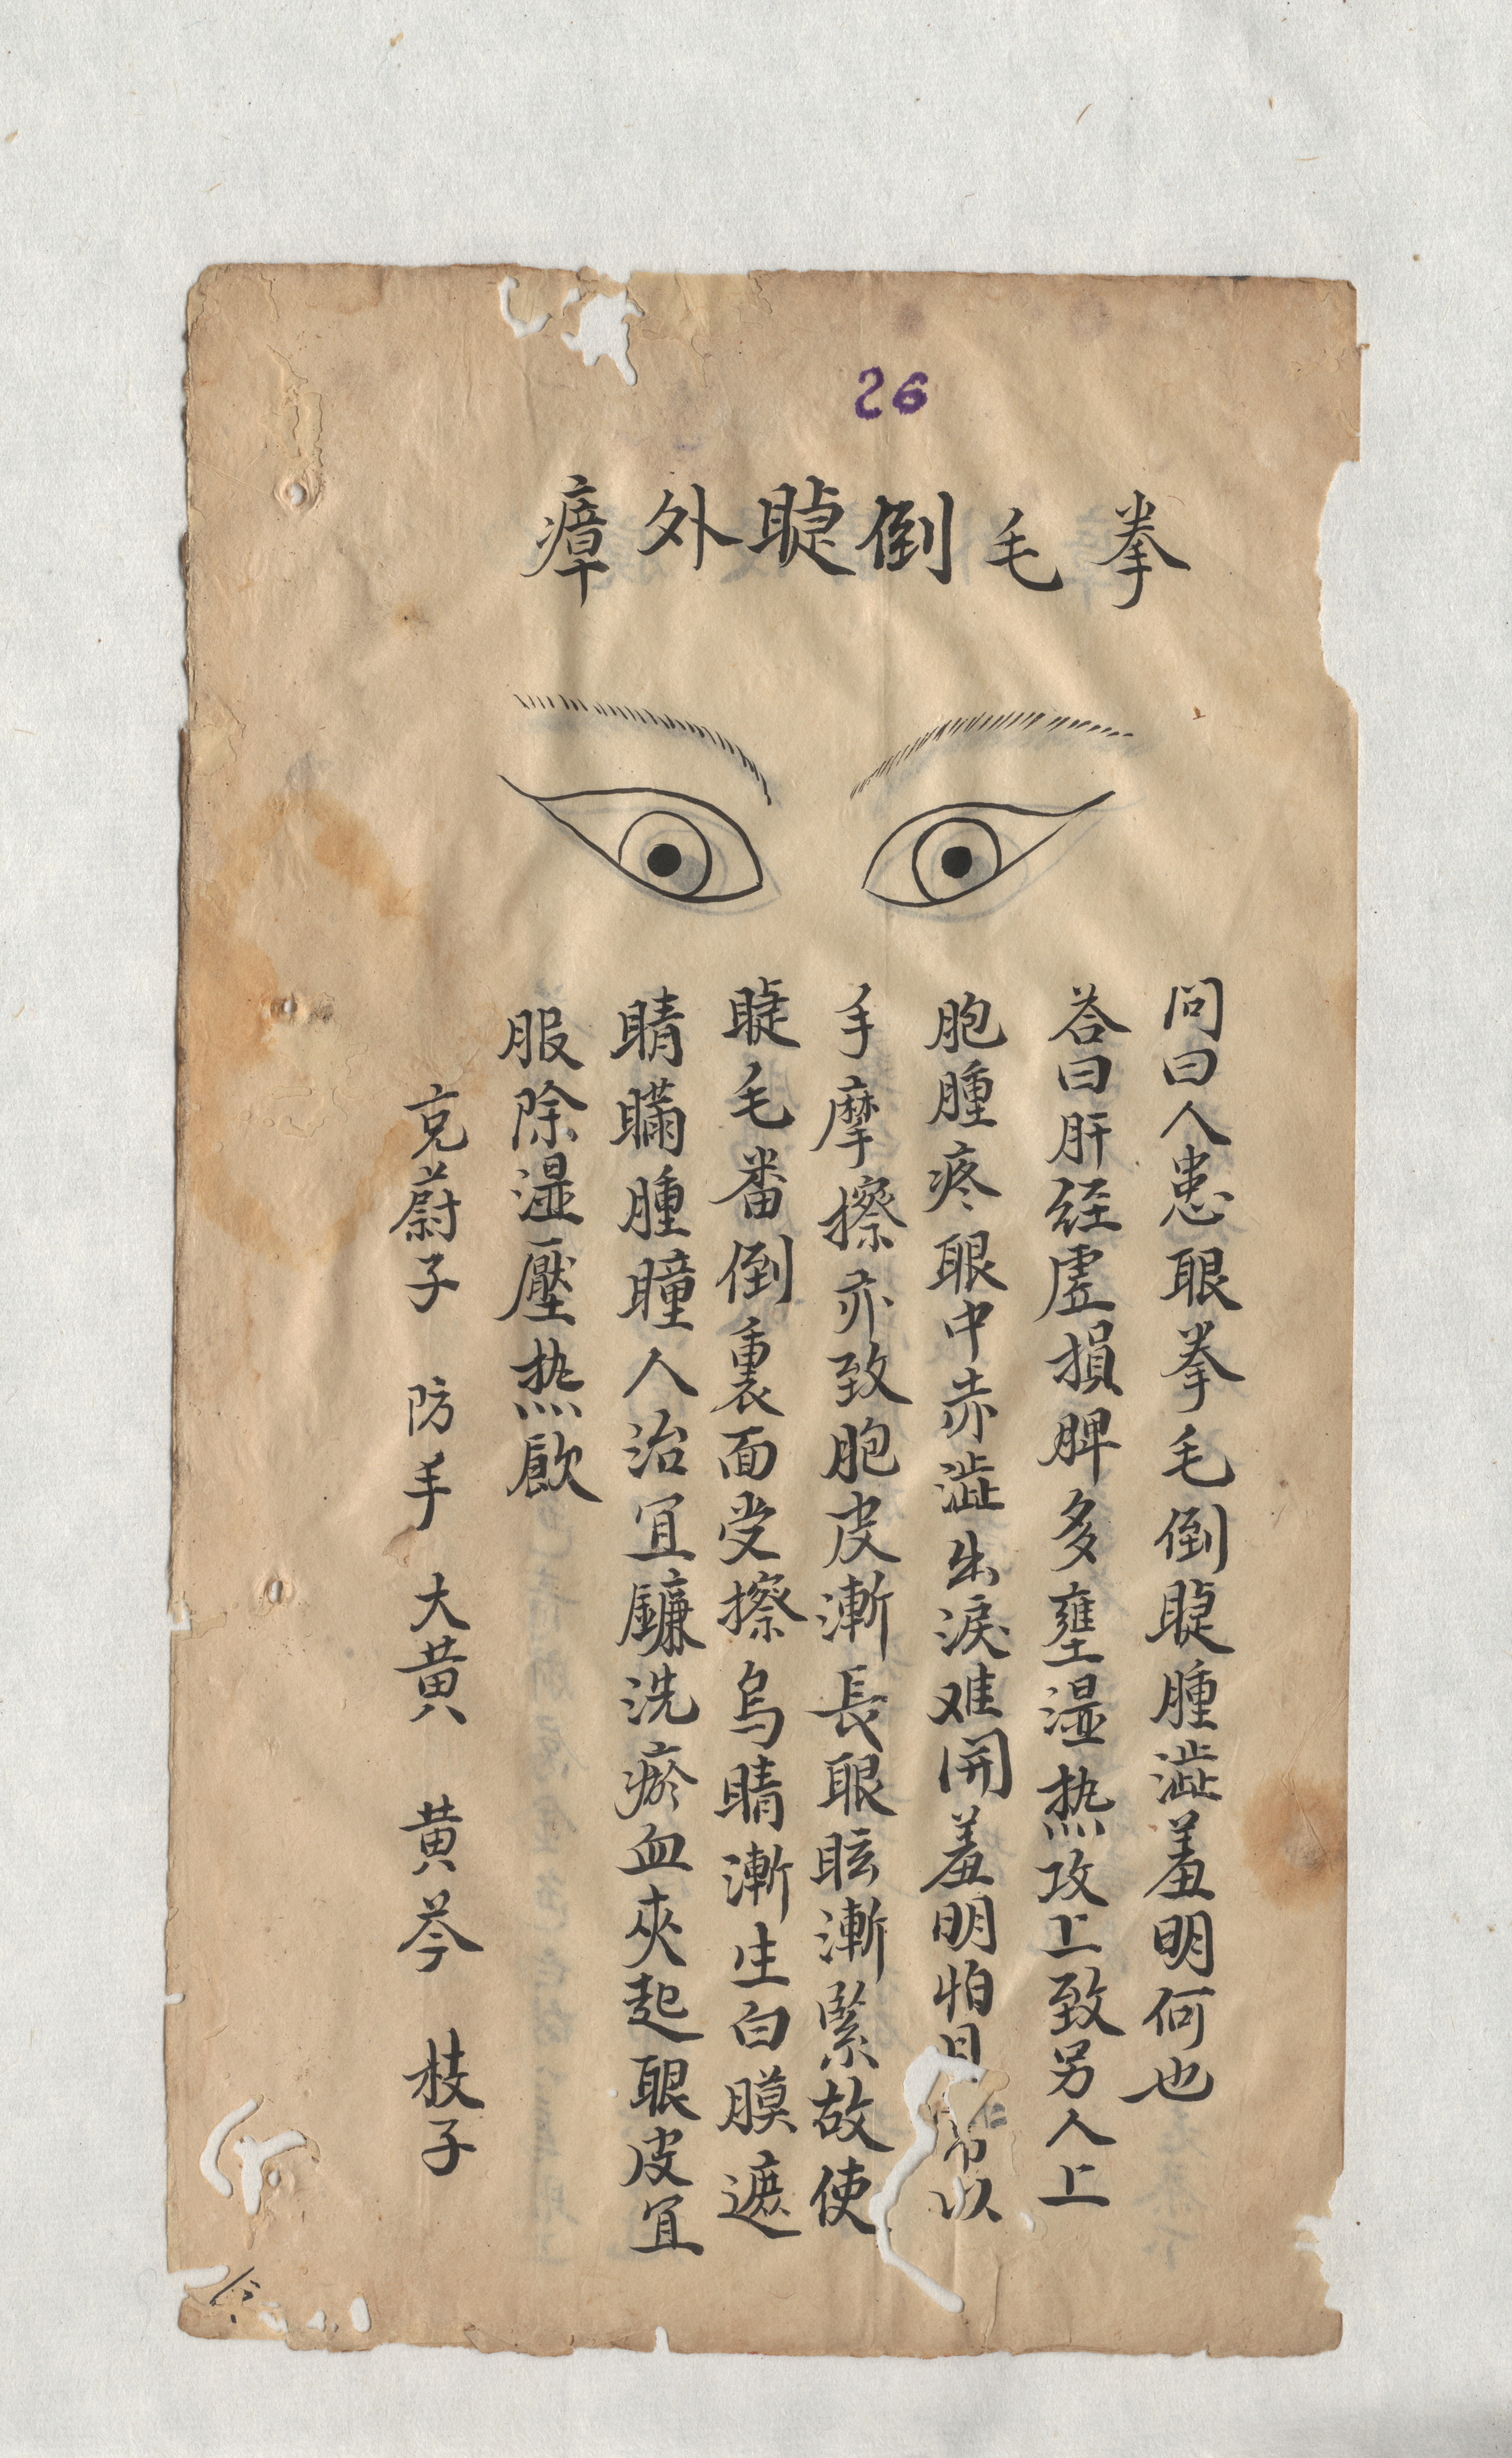 26
拳毛倒睫外瘴
问曰人患眼拳毛倒睫腫澁羞明何也
荅曰肝经虚損脾多壅湿热攻上致另人上
胞腫疼眼中赤澁出淚难開羞明怕日常以
手摩擦亦致胞皮漸長眼眩漸緊故使
睫毛番倒裏面受擦烏睛漸生白膜遮
睛瞞腫瞳人治宜鐮洗瘀血夾起眼皮宜
服除湿壓热飲
克蔚子　防手　大黄　黄芩　枝子